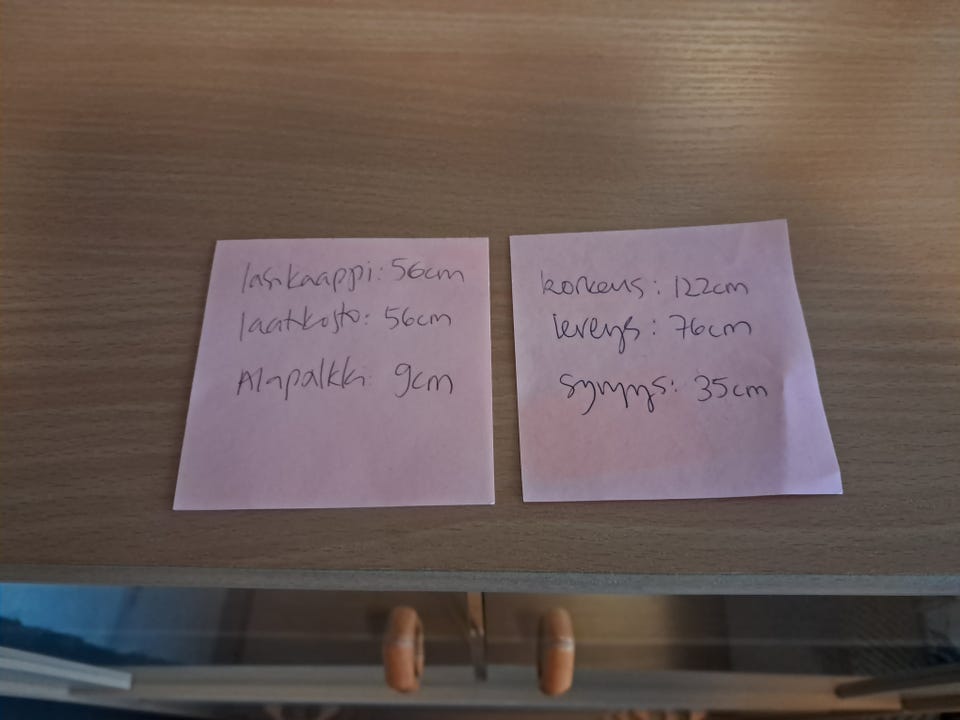 lasikaappi: 56cm
laatikosto: 56cm
Alapalkki: 9cm
korkeus: 122cm
leveys: 76cm
syvyys: 35cm